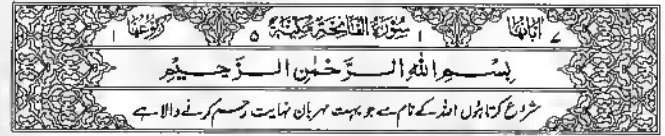 اٰیَاتُهَا ۷ سُوْرَةُ الْفَاتِحَةِ مَكِّیَّةٌ ۵ ۱ رُكُوْعُهَا ۱
بِسْــمِ اللّٰهِ الــرَّحْمٰنِ الــرَّحِــیْمِ
شروع کرتا ہوں اللہ کے نام سے جو بہت مہربان نہایت رحم کرنے والا ہے